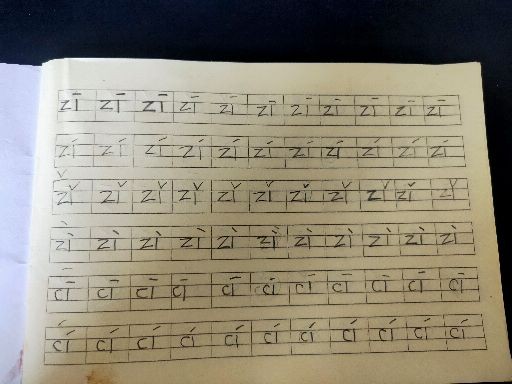 zī zī zī zī zī zī zī zī zī zī zī
zí zí zí zí zí zí zí zí zí zí zí
zǐ zǐ zǐ zǐ zǐ zǐ zǐ zǐ zǐ zǐ zǐ
zì zì zì zì zì zì zì zì zì zì zì
cī cī cī cī cī cī cī cī cī cī cī
cí cí cí cí cí cí cí cí cí cí cí